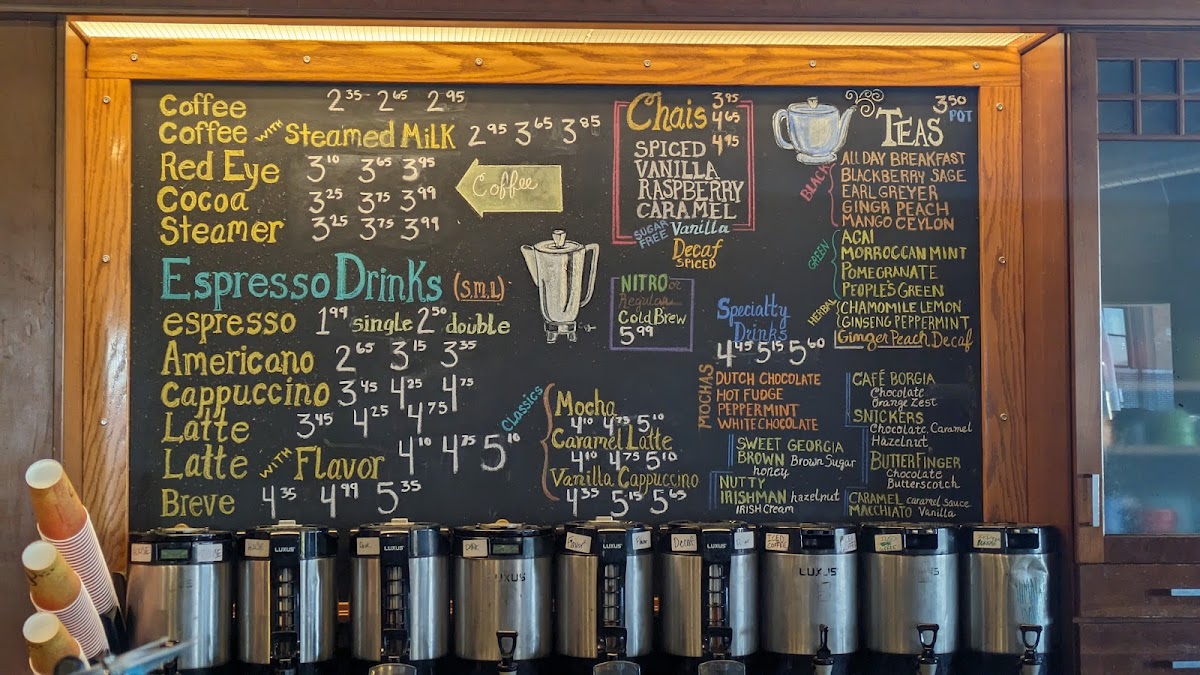 Coffee 2.35 - 2.65 2.95
Coffee with Steamed Milk 2.95 3.65 3.85
Red Eye 3.10 3.65 3.95
Cocoa 3.25 3.75 3.99
Steamer 3.25 3.75 3.99
Coffee
Espresso Drinks (S.M.L)
espresso 1.99 single 2.50 double
Americano 2.65 3.15 3.35
Cappuccino 3.45 4.25 4.75
Latte 3.45 4.25 4.75
Latte with Flavor 4.10 4.75 5.10
Breve 4.35 4.99 5.35
Classics
Mocha
4.10 4.75 5.10
Caramel Latte
4.10 4.75 5.10
Vanilla Cappuccino
4.35 5.15 5.65
Chais 3.95
4.65
4.95
SPICED
VANILLA
RASPBERRY
CARAMEL
SUGAR FREE Vanilla
Decaf
SPICED
NITRO or
Regular
Cold Brew
5.99
Specialty
Drinks
4.45 5.15 5.60
MOCHAS
DUTCH CHOCOLATE
HOT FUDGE
PEPPERMINT
WHITE CHOCOLATE
SWEET GEORGIA
BROWN Brown Sugar
honey
NUTTY
IRISHMAN hazelnut
IRISH Cream
CAFÉ BORGIA
Chocolate
Orange Zest
SNICKERS
Chocolate, Caramel
Hazelnut
BUTTERFINGER
Chocolate
Butterscotch
CARAMEL caramel sauce
MACCHIATO Vanilla
TEAS 3.50
POT
BLACK
ALL DAY BREAKFAST
BLACKBERRY SAGE
EARL GREYER
GINGR PEACH
MANGO CEYLON
GREEN
ACAI
MORROCCAN MINT
POMEGRANATE
PEOPLE'S GREEN
HERBAL
CHAMOMILE LEMON
GINSENG PEPPERMINT
Ginger Peach Decaf
LUXUS
LUXUS
LUXUS
LUXUS
LUXUS
LUXUS
Decaf
ICED COFFEE